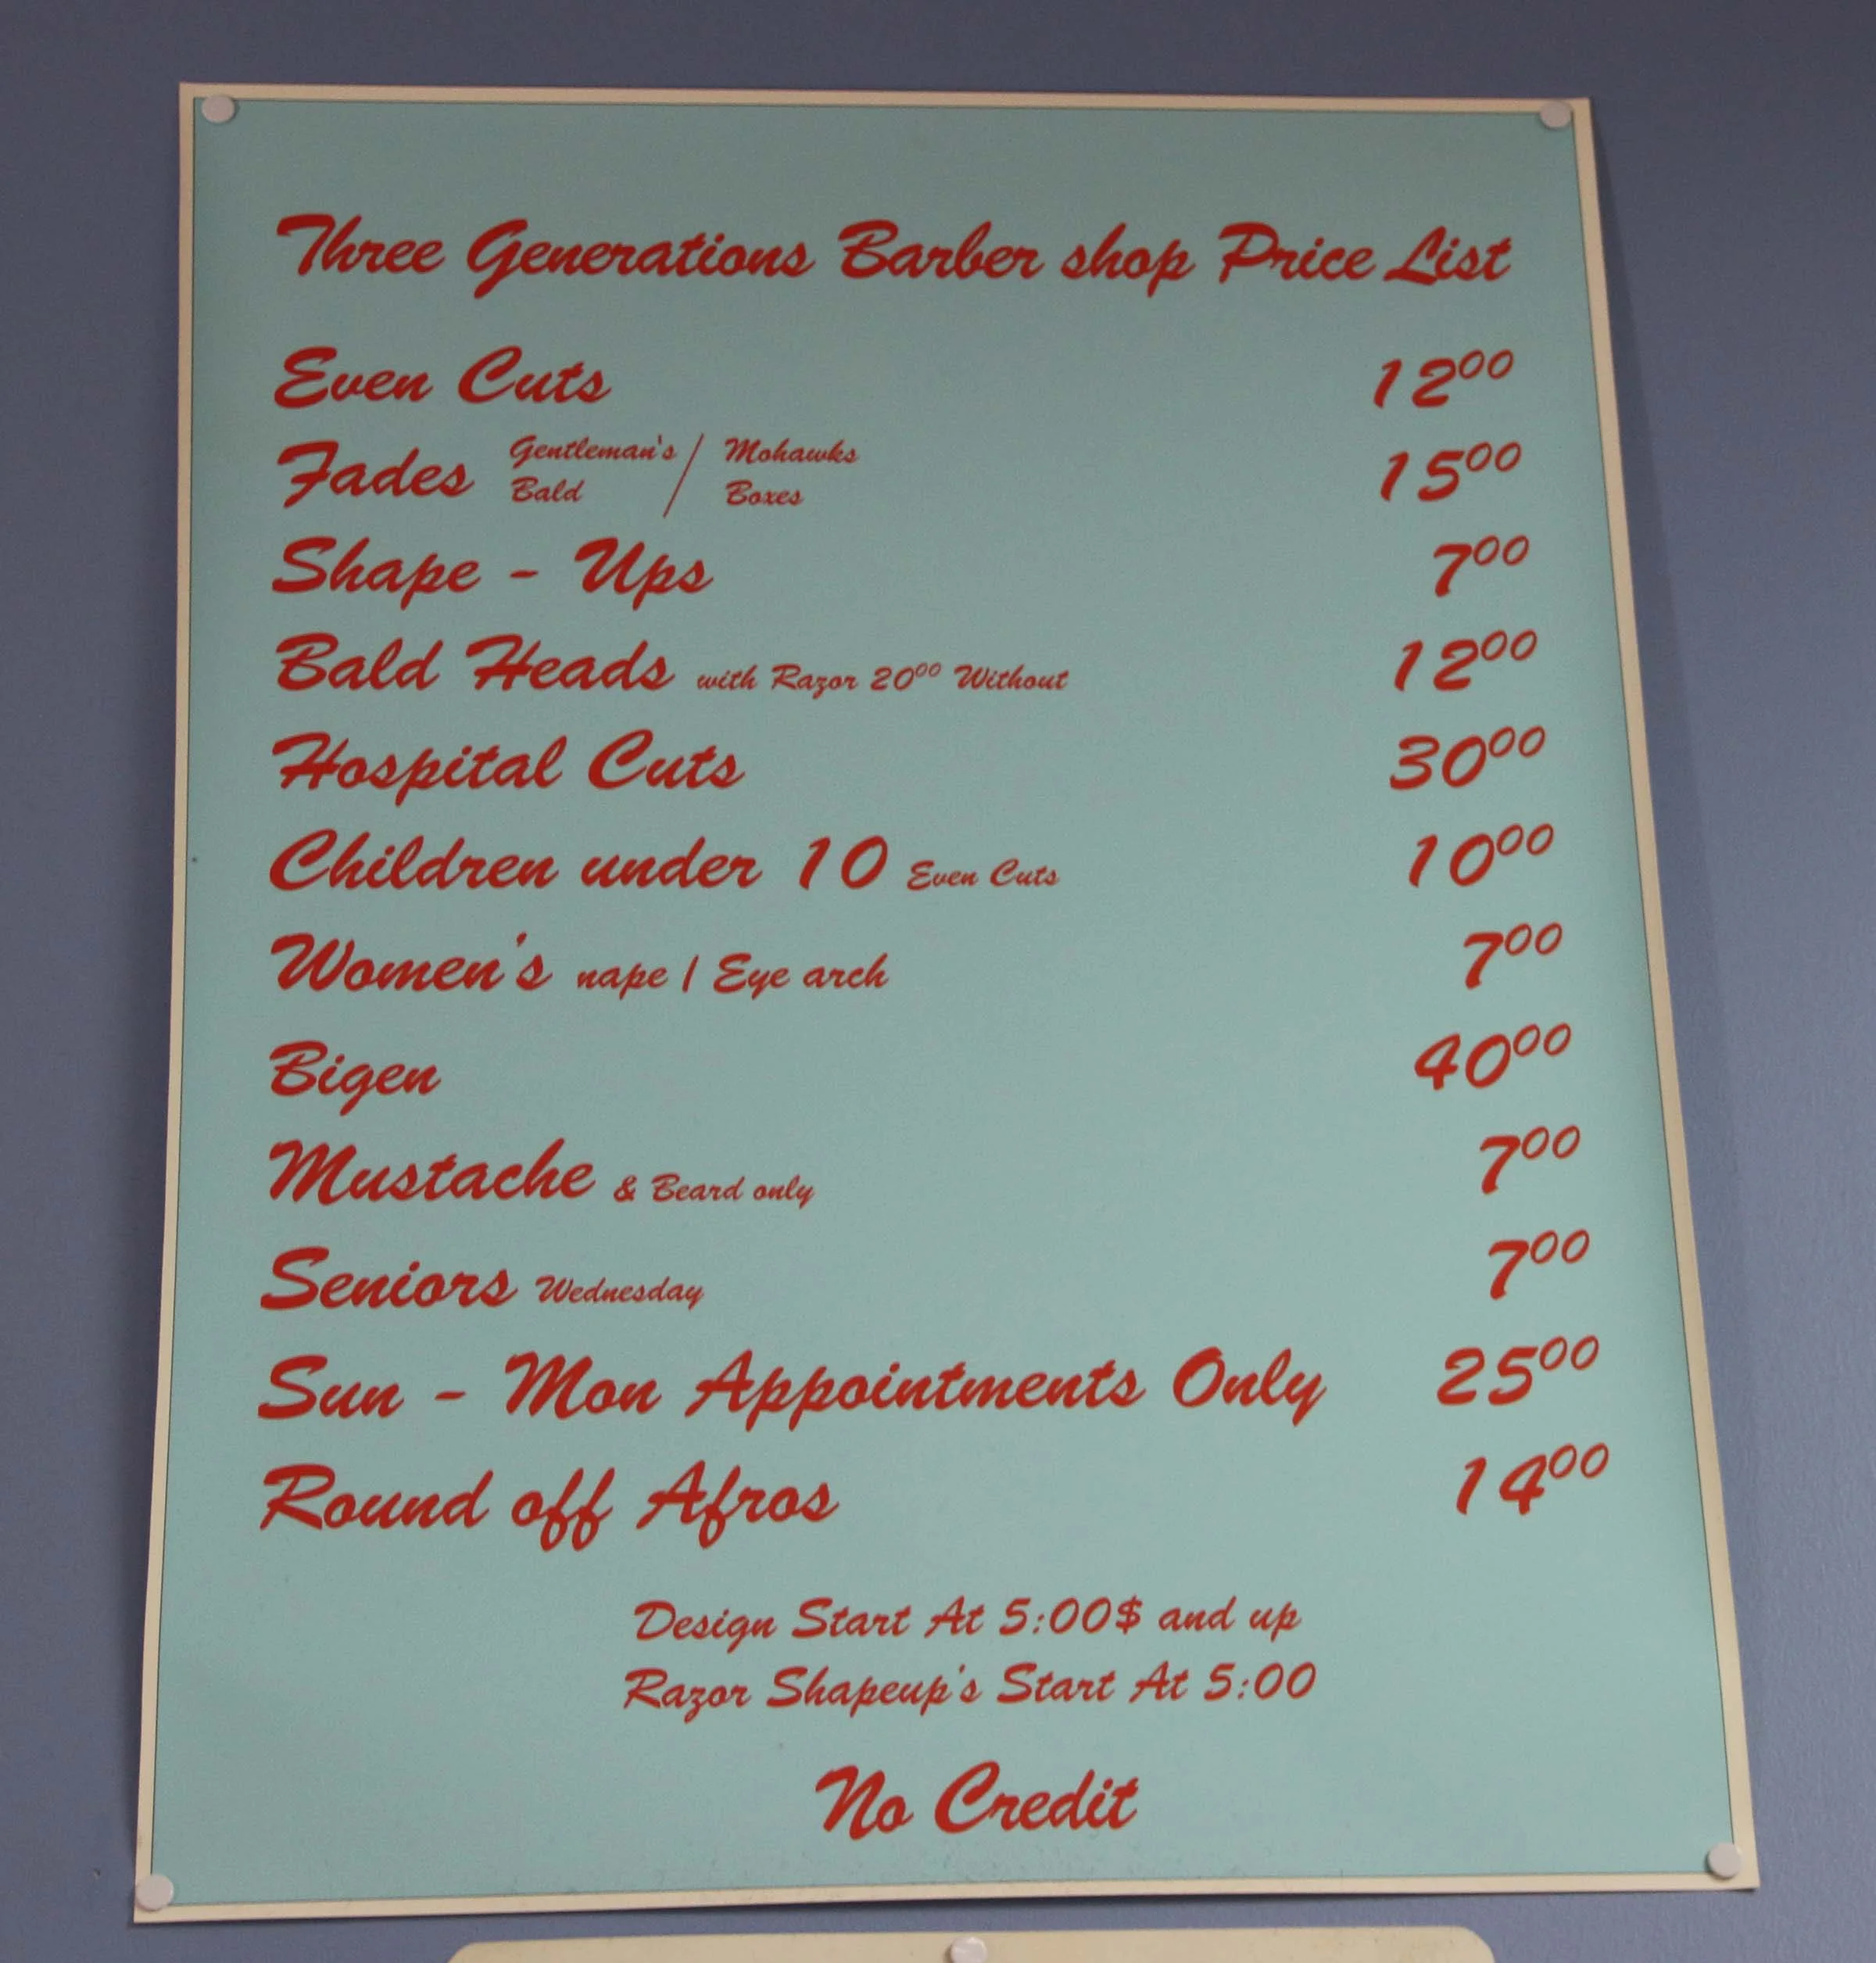 Three Generations Barber shop Price List
Even Cuts 12⁰⁰
Fades Gentleman's / Mohawks 15⁰⁰
Bald Boxes
Shape - Ups 7⁰⁰
Bald Heads with Razor 20⁰⁰ Without 12⁰⁰
Hospital Cuts 30⁰⁰
Children under 10 Even Cuts 10⁰⁰
Women's nape / Eye arch 7⁰⁰
Bigen 40⁰⁰
Mustache & Beard only 7⁰⁰
Seniors Wednesday 7⁰⁰
Sun - Mon Appointments Only 25⁰⁰
Round off Afros 14⁰⁰
Design Start At 5:00$ and up
Razor Shapeup's Start At 5:00
No Credit